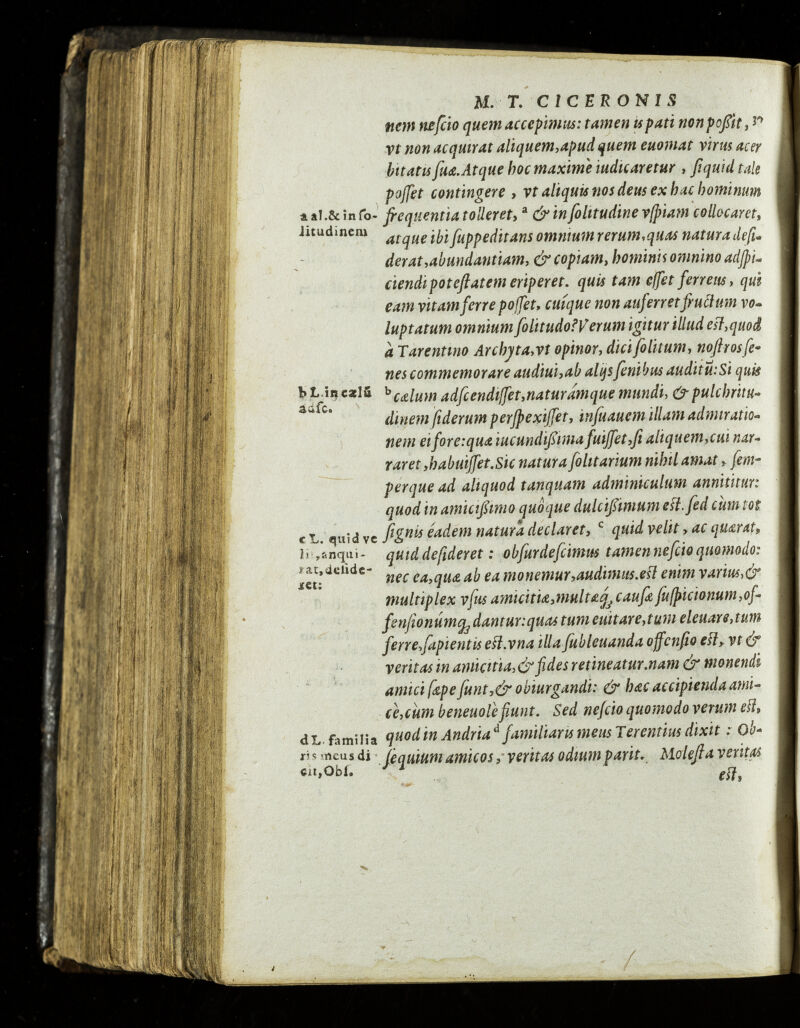 M. T. CICERONIS
nem nescio quem accepimus: tamen is pati non poßit,
vt non acquirat aliquem, apud quem euomat virus acer
bitatis suæ. Atque hoc maximè iudicaretur, si quid tale
posset contingere, vt aliquis nos deus ex hac hominum
a al. & in so-
litudinem
frequentia tolleret, a & in solitudine vspiam collocaret,
atque ibi suppeditans omnium rerum, quas natura desi-
derat, abundantiam, & copiam, hominis omnino adspi-
ciendi potestatem eriperet. quis tam esset ferreus, qui
eam vitam ferre posset, cuíque non auferret fructum vo-
luptatum omnium solitudo? Verum igitur illud est, quod
à Tarentino Archyta, vt opinor, dici solitum, nostros se-
nes commemorare audiui, ab alijs senibus auditū: Si quis
b L. in cælū
adsc.
b cælum adscendisset, naturámque mundi, & pulchritu-
dinem siderum perspexisset, insuauem illam admiratio-
nem ei fore: quæ iucundißima fuisset, si aliquem, cui nar-
raret, habuisset. Sic natura solitarium nihil amat, sem-
perque ad aliquod tanquam adminiculum annititur:
quod in amicißimo quóque dulcißimum est. sed cùm tot
c L. quid ve
li, anqui-
rat, deside-
ret:
signis éadem natura declaret, c quid velit, ac quærat,
quid desideret: obsurdescimus tamen nescio quomodo:
nec ea, quæ ab ea monemur, audimus. est enim varius, &
multiplex vsus amicitiæ, multæq; causæ suspicionum, of-
fensionúmq; dantur: quas tum euitare, tum eleuare, tum
ferre, sapientis est. vna illa subleuanda offensio est, vt &
veritas in amicitia, & fides retineatur. nam & monendi
amici sæpe sunt, & obiurgandi: & hæc accipienda ami-
cè, cùm beneuolè fiunt. Sed nescio quomodo verum est,
d L. familia
ris meus di
cit, Obs.
quod in Andria d familiaris meus Terentius dixit: Ob-
sequium amicos, veritas odium parit. Molesta veritas
est,